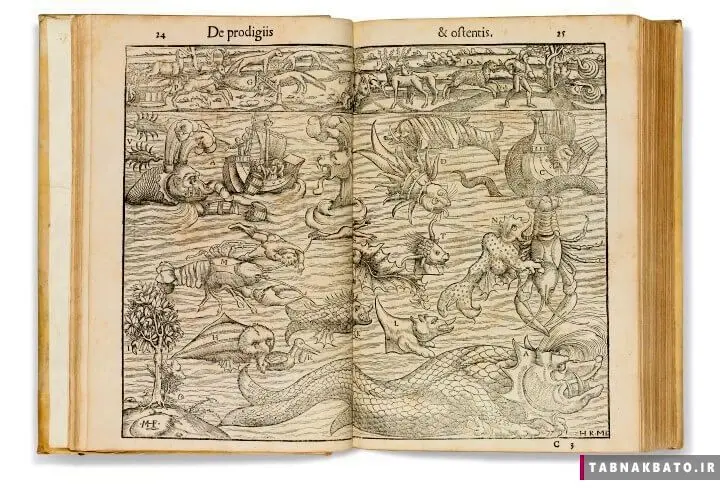 24
De prodigiis
& ostentis.
25
A
D
C
N
L
H
K
MF
HRMD
C 3
TABNAKBATO.IR